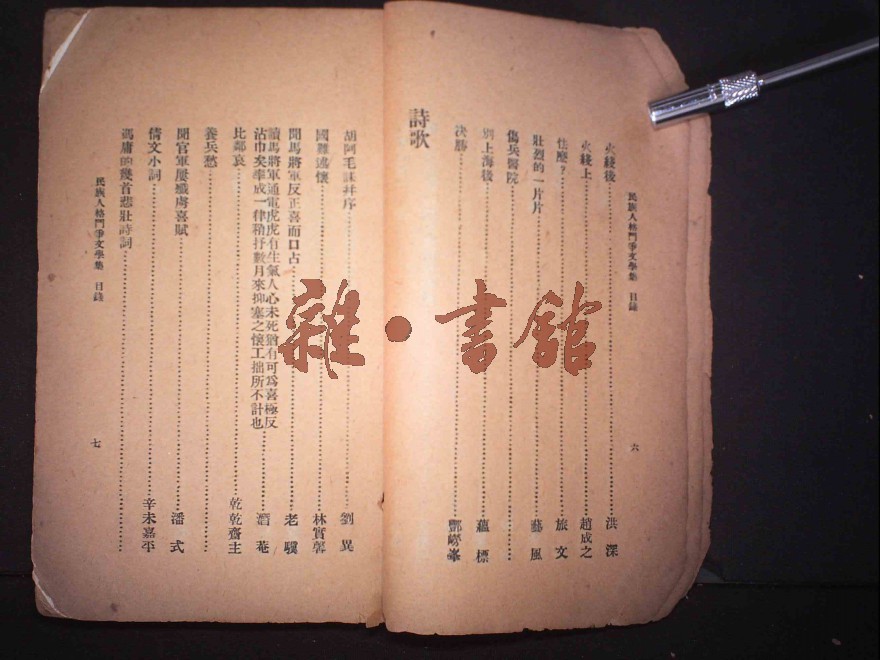 民族人格鬥爭文學集 目錄
火綫後 洪深
火綫上 趙成之
怯麼？ 旅文
壯烈的一片片 藝風
傷兵醫院
別上海後 蘊標
決勝 酆嶗峯
六
詩歌
胡阿毛誄并序 劉異
國難遣懷 林實馨
聞馬將軍反正喜而口占 老驥
讀馬將軍通電虎虎有生氣人心未死猶有可為喜極反
沾巾矣率成一律稍抒數月來抑塞之懷工拙所不計也 潛菴
比鄰哀 乾乾齋主
養兵愁
聞官軍屢殲虜喜賦 潘式
倩文小詞 辛未嘉平
馮庸的幾首悲壯詩詞
民族人格鬥爭文學集 目錄
七
雜·書館